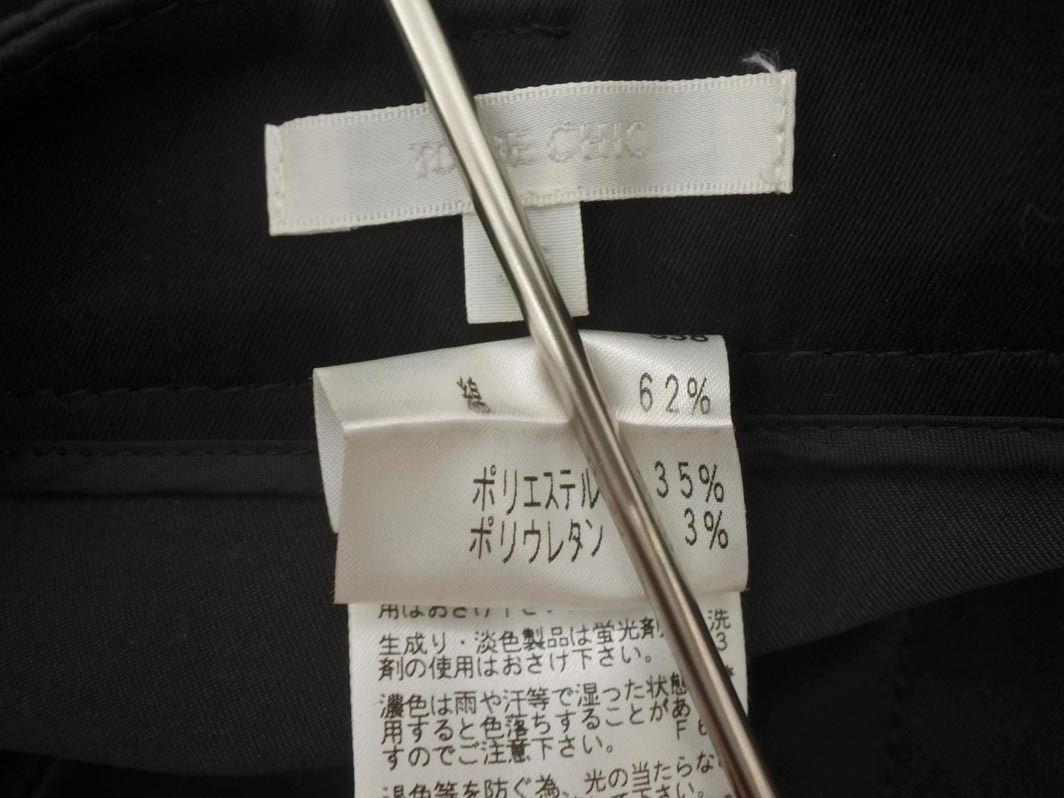 CHIC
綿 62%
ポリエステル 35%
ポリウレタン 3%
用はおさけ下さい
生成り・淡色製品は蛍光剤 洗
剤の使用はおさけ下さい。
濃色は雨や汗等で湿った状態
用すると色落ちすることがあ
すのでご注意下さい。
退色等を防ぐ為、光の当たらな
下さい。